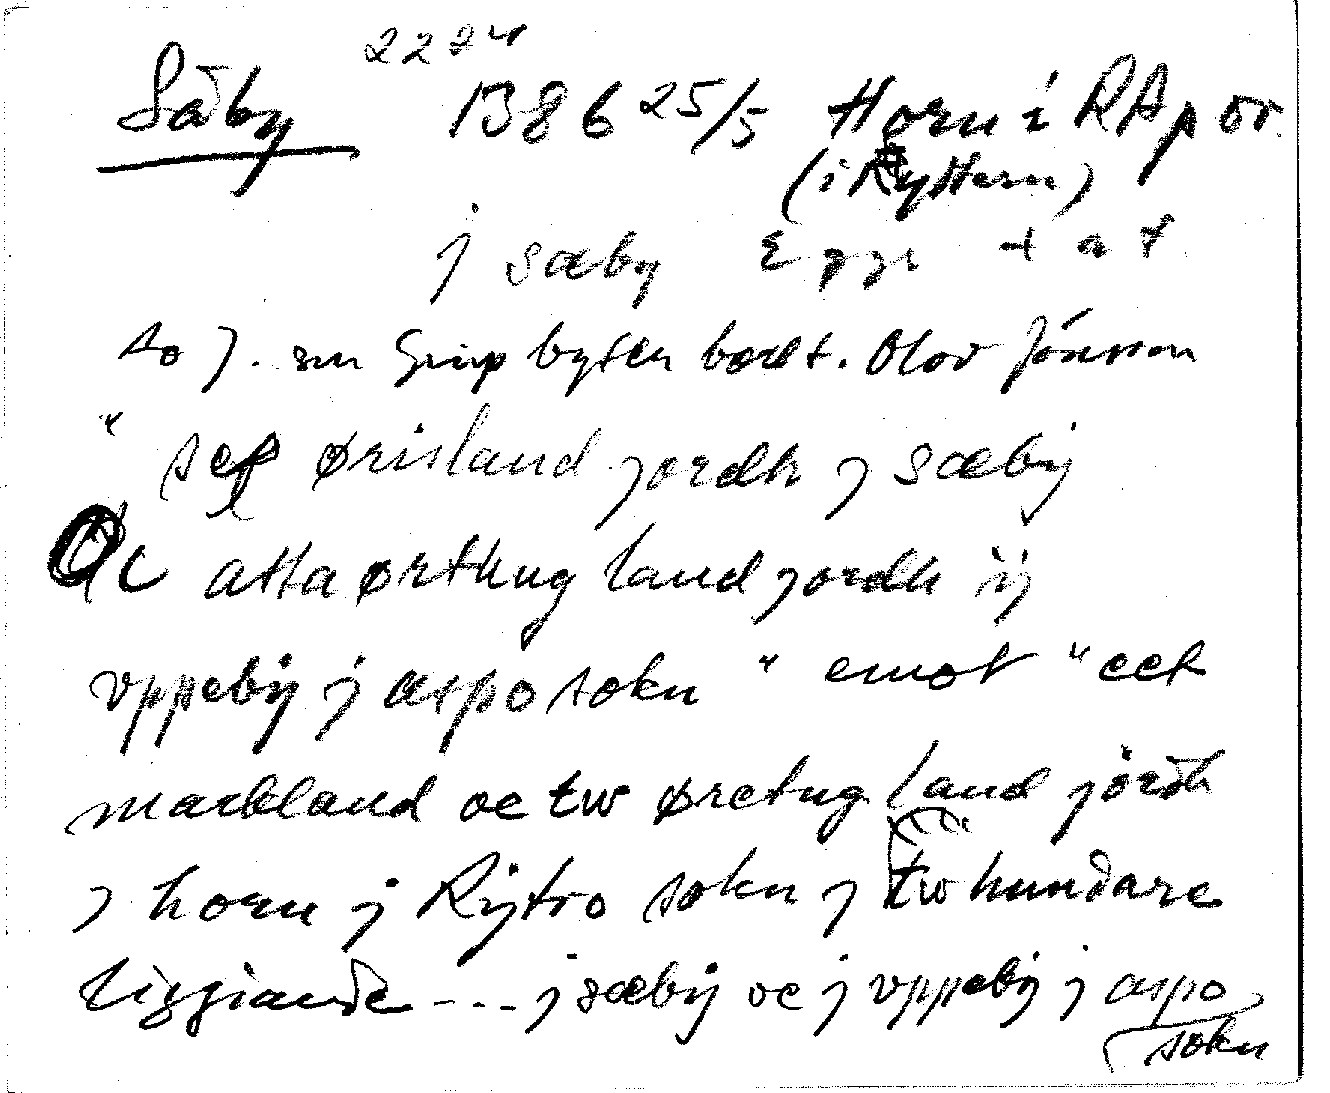 2224
Såby 1386 25/5 Horn i RAp or.
(i Ryttern)
j sæby Eggi + a t
so). sin Grip byter bort. Olov Jönsson
" sex ørisland jordh j sæby
Oc atta ørthug land jordh ij
vppeby j aspo sokn " emot " eet
markland oc tw øretug land jordh
j horn j Rytro sokn j tw hundare
liggiande --- j sæby oc j vppeby j aspo
sokn